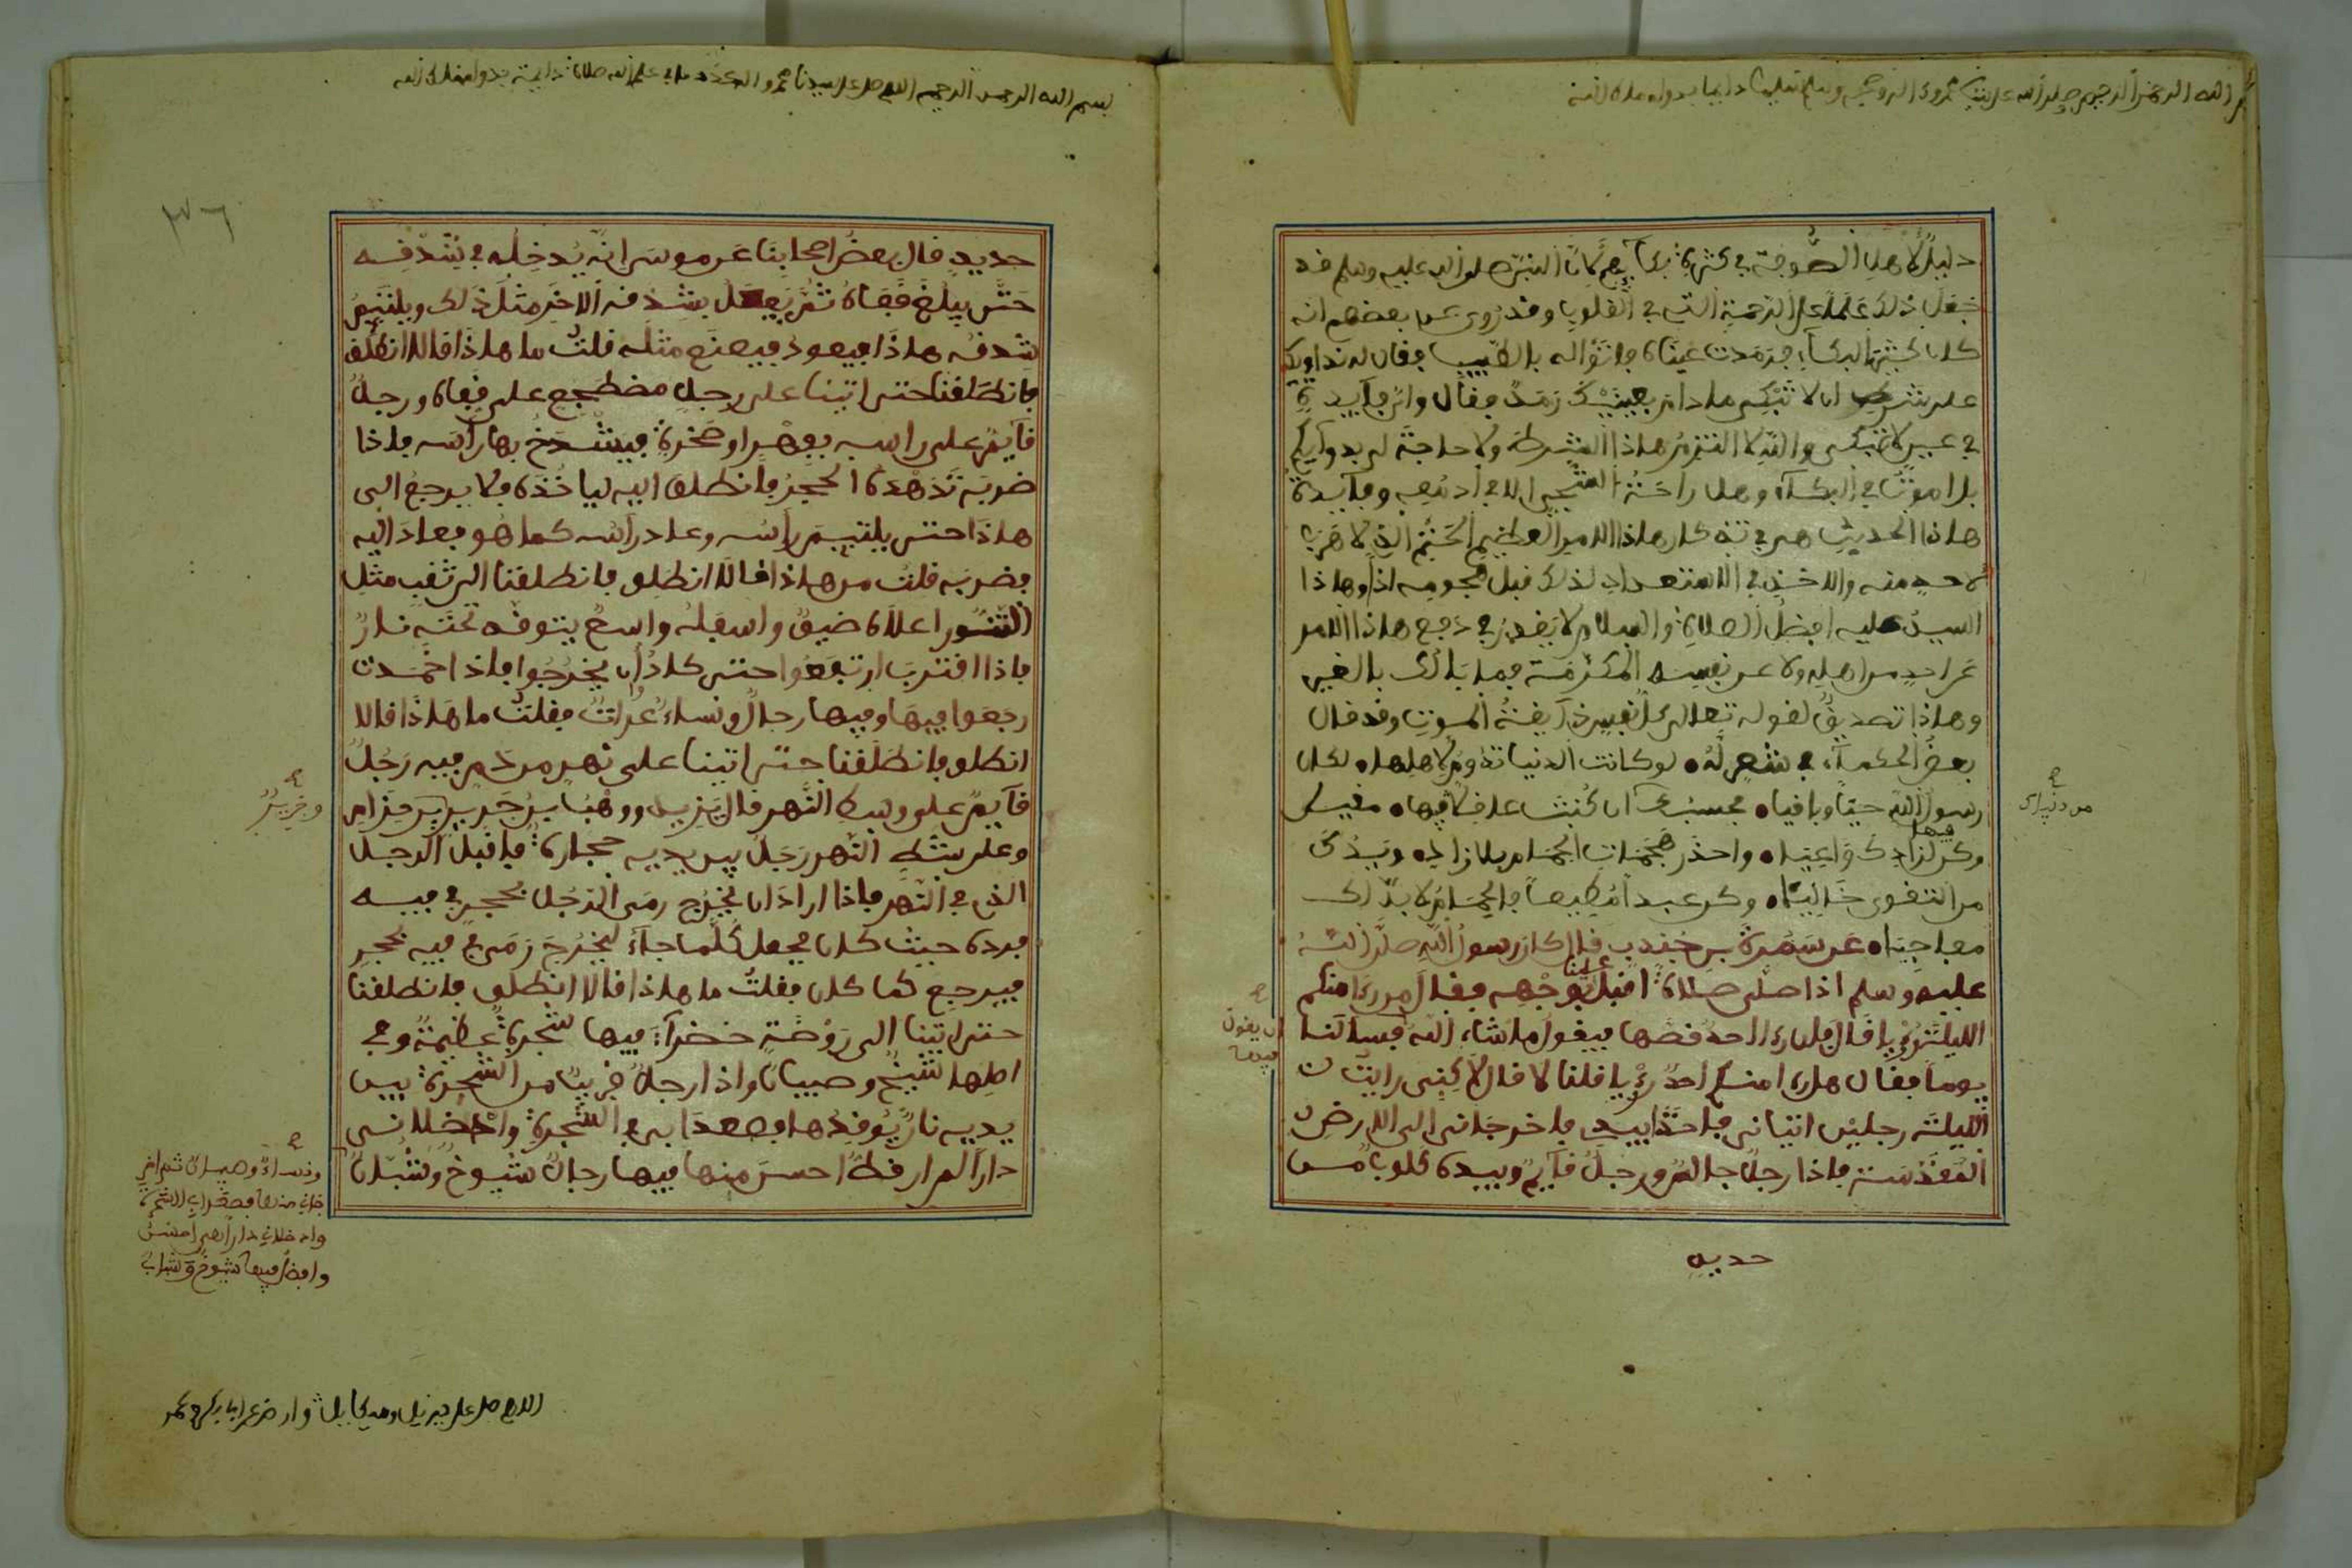 الله الرحمن الرحيم صلى الله على
دليل لأهل الصوفية في كثرة بكائهم لأن النبي صلى الله عليه وسلم قد
جعل ذلك علما على الرحمة التي في القلوب وقد روي عن بعضهم انه
كان كثير البكاء فرمدت عيناه فاتوا له بالطبيب فقال له نداويك
على شرط ان لا تبكي مادام بعينيك رمد فقال واي فايدة
في عيني لا تبكي والله لا التزم هاذا الشرط ولا حاجة لي بدوايكم
هاذا الحديث هي في تذكار هاذا الامر العظيم الحتم الذي لا هرب
لاحد منه والاخذ في الاستعداد لذلك قبل هجومه اذ وهاذا
السيد عليه افضل الصلاة والسلام لا يقدر في دفع هاذا الامر
عن احد من اهله ولا عن نفسه المكرمة فما بالك بالغير
وهاذا تصديق لقوله تعالى كل نفس ذايقة الموت وقد قال
بعض الحكماء في شعر له لو كانت الدنيا تدوم لاهلها لكان
رسول الله حيا وباقيا
من دنياك
فيها
واحذر هجمات الحمام بلا زاد ويدك
من التقوى خالية وكن عبدا مطيعا فالحمام لا بد لك
مفاجيا عن سمرة بن جندب قال كان رسول الله صلى الله
علينا
عليه وسلم اذا صلى صلاة اقبل بوجهه فقال من رءا منكم
الليلة رؤيا قال فان رءا احد قصها فيقول ما شاء الله فسالنا
ان يقول
يوما فقال هل رءا منكم احد رؤيا قلنا لا قال لاكني رايت
الليلة رجلين اتياني فاخذا بيدي فاخرجاني الى الارض
المقدسة فاذا رجل جالس ورجل قايم وبيده كلوب من
حديد
بسم الله الرحمن الرحيم اللهم صل على سيدنا محمد
٣٦
حديد قال بعض اصحابنا عن موسى انه يدخله في شدقه
حتى يبلغ قفاه ثم يفعل بشدقه الاخر مثل ذلك ويلتيم
شدقه هاذا فيعود فيصنع مثله قلت ما هاذا قالا انطلق
فانطلقنا حتى اتينا على رجل مضطجع على قفاه ورجل
قايم على راسه بفهر او صخرة فيشدخ بها راسه فاذا
ضربه تدهده الحجر فانطلق اليه لياخذه فلا يرجع الى
هاذا حتى يلتيم راسه وعاد راسه كما هو فعاد اليه
فضربه قلت من هاذا قالا انطلق فانطلقنا الى ثقب مثل
التنور اعلاه ضيق واسفله واسع يتوقد تحته نار
فاذا اقترب ارتفعوا حتى كاد ان يخرجوا فاذا خمدت
رجعوا فيها وفيها رجال ونساء عرات فقلت ما هاذا قالا
انطلق فانطلقنا حتى اتينا على نهر من دم فيه رجل
قايم على وسط النهر قال يزيد ووهب بن جرير بن حزام
وجرير
وعلى شط النهر رجل بين يديه حجارة فاقبل الرجل
الذي في النهر فاذا اراد ان يخرج رمى الرجل بحجر في فيه
فرده حيث كان فجعل كلما جاء ليخرج رمى في فيه بحجر
فيرجع كما كان فقلت ما هاذا قالا انطلق فانطلقنا
حتى اتينا الى روضة خضراء فيها شجرة عظيمة وفي
اصلها شيخ وصبيان واذا رجل قريب من الشجرة بين
يديه نار يوقدها فصعدا بي في الشجرة وادخلاني
دارا لم ار قط احسن منها فيها رجال شيوخ وشبان
ونساء وصبيان ثم اخر
جاني منها فصعدا بي الشجرة
وادخلاني دارا هي احسن
وافضل فيها شيوخ وشباب